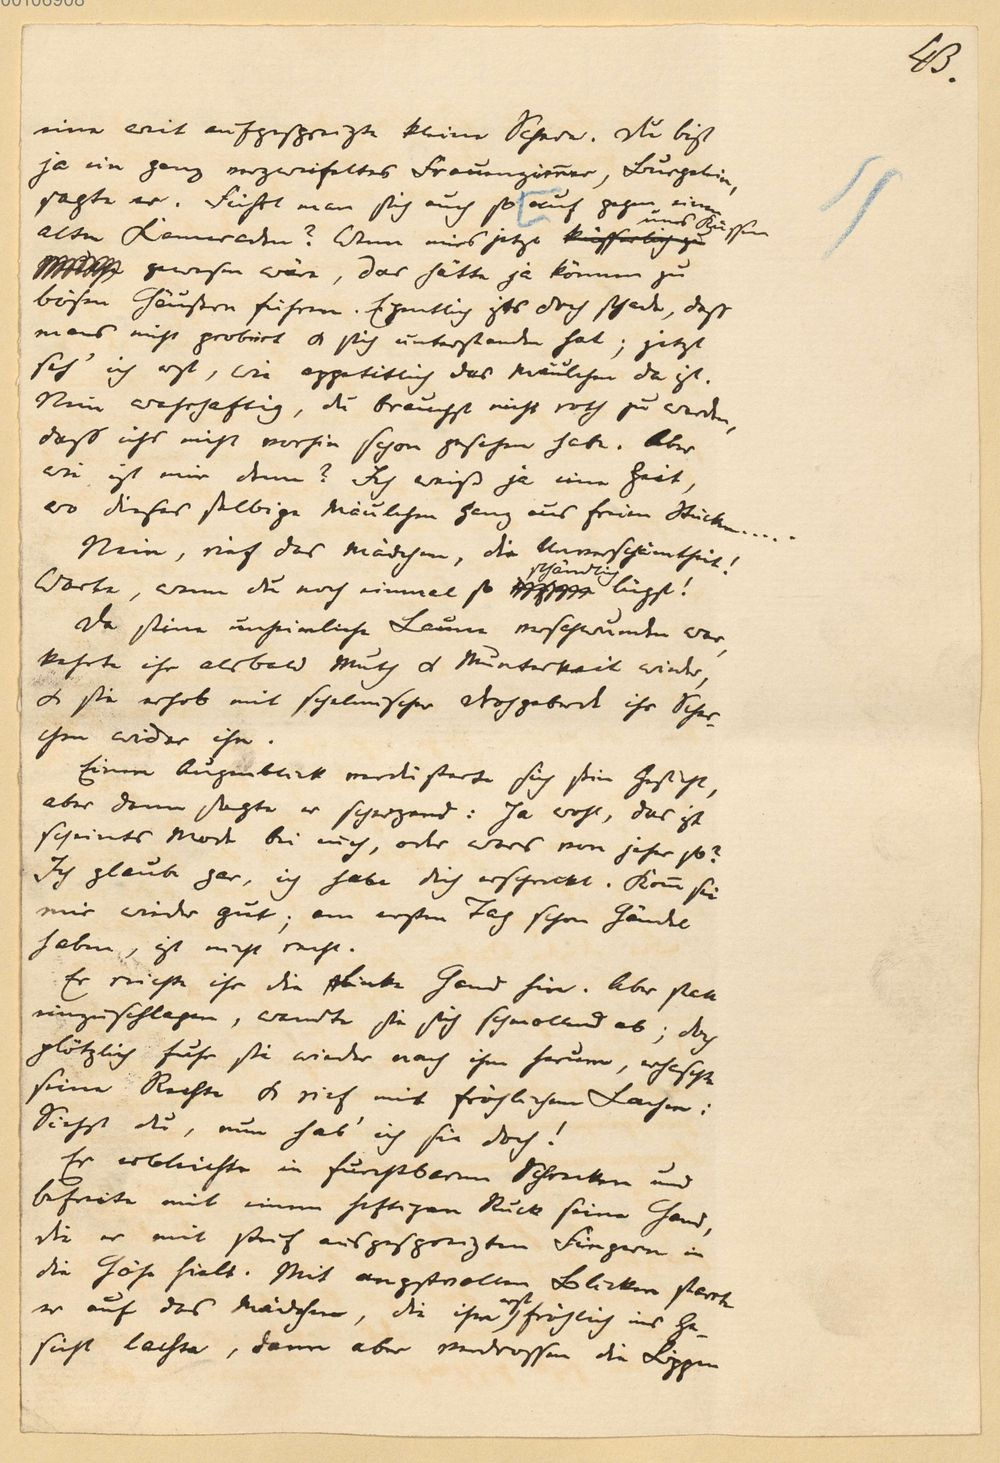 00106908
43.
eine weit aufgespreizte kleine Schere. Du bist
ja ein ganz verzweifeltes Frauenzim̄er, Burgelein,
sagte er. Führt man sich auch so auf gegen einen
alten Kameraden? Wenn mirs jetzt küsserlich zu
ums Küssen
gewesen wäre, das hätte ja können zu
bösen Häusern führen. Eigentlich ists doch schade, dass
mans nicht probiert & sich unterstanden hat; jetzt
seh' ich erst, wie appetitlich das Mäulchen da ist.
Nein wahrhaftig, du brauchst nicht roth zu werden,
dass ichs nicht vorhin schon gesehen habe. Aber
wie ist mir denn? Ich weiß ja eine Zeit,
wo dieses selbige Mäulchen ganz aus freien Stücken.....
Nein, rief das Mädchen, die Unverschämtheit!
schändlich
Warte, wenn du noch einmal so lügst!
Da seine unheimliche Laune verschwunden war,
kehrte ihr alsbald Muth & Munterkeit wieder,
& sie erhob mit schelmischer Drohgeberde ihr Scher-
chen wider ihn.
Einen Augenblick verdüsterte sich sein Gesicht,
aber dann sagte er scherzend: Ja wohl, das ist
scheints Mode bei euch, oder wars von jeher so?
Ich glaube gar, ich habe dich erschreckt. Kom̄ sei
mir wieder gut; am ersten Tag schon Händel
haben, ist nicht recht.
Er reichte ihr die linke Hand hin. Aber statt
einzuschlagen, wandte sie sich schmollend ab; doch
plötzlich fuhr sie wieder nach ihm herum, erhaschte
seine Rechte & rief mit fröhlichem Lachen:
Siehst du, nun hab' ich sie doch!
Er erbleichte in furchtbarem Schrecken und
befreite mit einem heftigen Ruck seine Hand,
die er mit steif ausgespreizten Fingern in
die Höhe hielt. Mit angstvollen Blicken starrte
erst
er auf das Mädchen, die ihm fröhlich ins Ge-
sicht lachte, dann aber verdrossen die Lippen